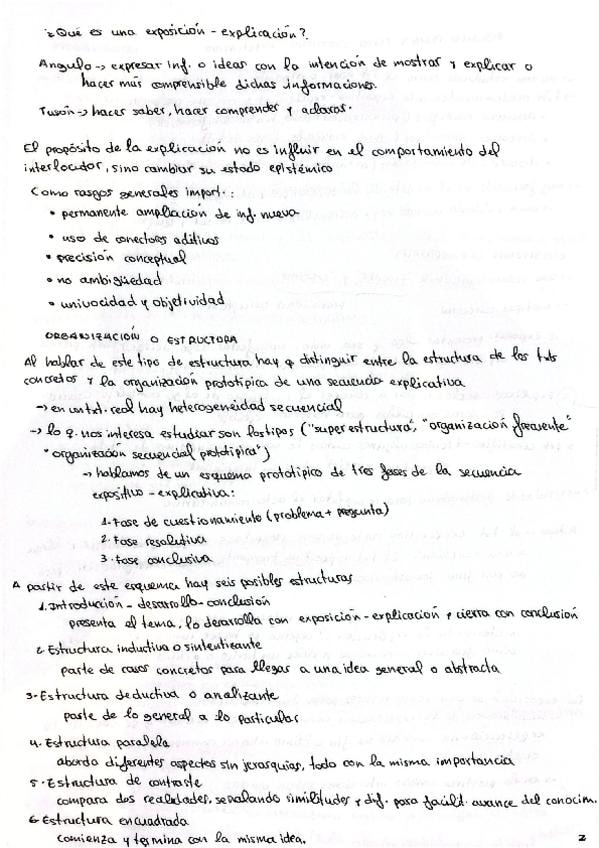 ¿Qué es una exposición - explicación?
Angulo -> expresar inf. o ideas con la intención de mostrar y explicar o
hacer más comprensible dichas informaciones.
Tusón -> hacer saber, hacer comprender y aclarar.
El propósito de la explicación no es influir en el comportamiento del
interlocutor, sino cambiar su estado epistémico
Como rasgos generales import.:
• permanente ampliación de inf. nueva
• uso de conectores aditivos
• precisión conceptual
• no ambigüedad
• univocidad y objetividad
ORGANIZACIÓN O ESTRUCTURA
Al hablar de este tipo de estructura hay q distinguir entre la estructura de los txts
concretos y la organización prototípica de una secuencia explicativa
-> en un txt. real hay heterogeneidad secuencial
-> lo q. nos interesa estudiar son los tipos ("superestructura", "organización frecuente"
"organización secuencial prototípica")
-> hablamos de un esquema prototípico de tres fases de la secuencia
expositivo - explicativa:
1. Fase de cuestionamiento (problema + pregunta)
2. Fase resolutiva
3. Fase conclusiva
A partir de este esquema hay seis posibles estructuras
1. Introducción - desarrollo - conclusión
presenta el tema, lo desarolla con exposición - explicación y cierra con conclusión
2. Estructura inductiva o sintentizante
parte de casos concretos para llegar a una idea general o abstracta
3. Estructura deductiva o analizante
parte de lo general a lo particular
4. Estructura paralela
aborda diferentes aspectos sin jerarquías, todo con la misma importancia
5. Estructura de contraste
compara dos realidades, señalando similitudes y dif. para facilit. avance del conocim.
6. Estructura encuadrada
comienza y termina con la misma idea.
2